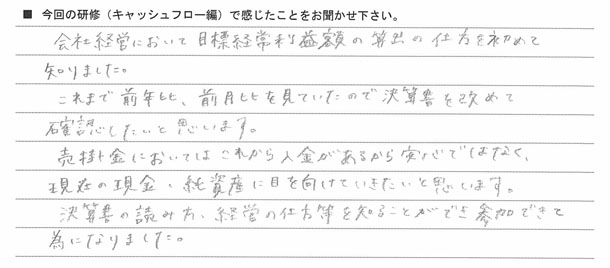 ■ 今回の研修（キャッシュフロー編）で感じたことをお聞かせ下さい。
会社経営において目標経常利益額の算出の仕方を初めて
知りました。
これまで前年比、前月比を見ていたので決算書を改めて
確認したいと思います。
売掛金においてはこれから入金があるから安心ではなく、
現在の現金、純資産に目を向けていきたいと思います。
決算書の読み方、経営の仕方等を知ることができ参加できて
為になりました。